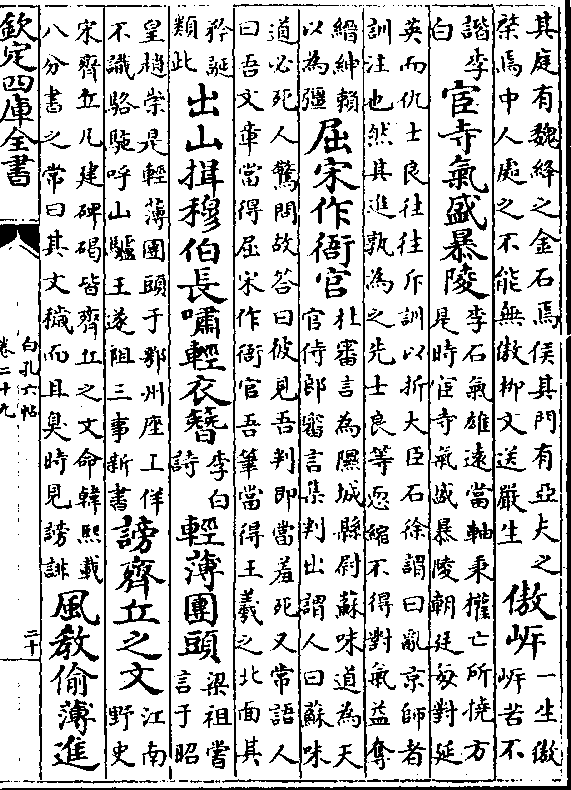 其庭有魏絳之金石焉侯其門有亞夫之
棨焉中人處之不能無傲柳文送嚴生
傲岍
一生傲
岍苦不
諧李
白
宦寺氣盛暴陵
李石氣雄遠當軸秉權亡所撓方
是時宦寺氣盛暴陵朝廷每對延
英而仇士良往往斥訓以折大臣石徐謂曰亂京師者
訓注也然其進孰為之先士良等恧縮不得對氣益奪
縉紳賴
以為彊
屈宋作衙官
杜審言為隰城縣尉蘇味道為天
官侍郎審言集判出謂人曰蘇味
道必死人驚問故答曰彼見吾判即當羞死又常語人
曰吾文章當得屈宋作衙官吾筆當得王羲之北面其
矜誕
類此
出山揖穆伯長嘯輕衣簪
李白
詩
輕薄團頭
梁祖嘗
言于昭
皇趙崇是輕薄團頭于鄂州座上佯
不識駱駞呼山驢王遂阻三事新書
謗齊丘之文
江南
野史
宋齊丘凡建碑碣皆齊丘之文命韓熙載
八分書之常曰其文穢而且臭時見謗誹
風教偷薄進
欽定四庫全書
白孔六帖
卷二十九
二十